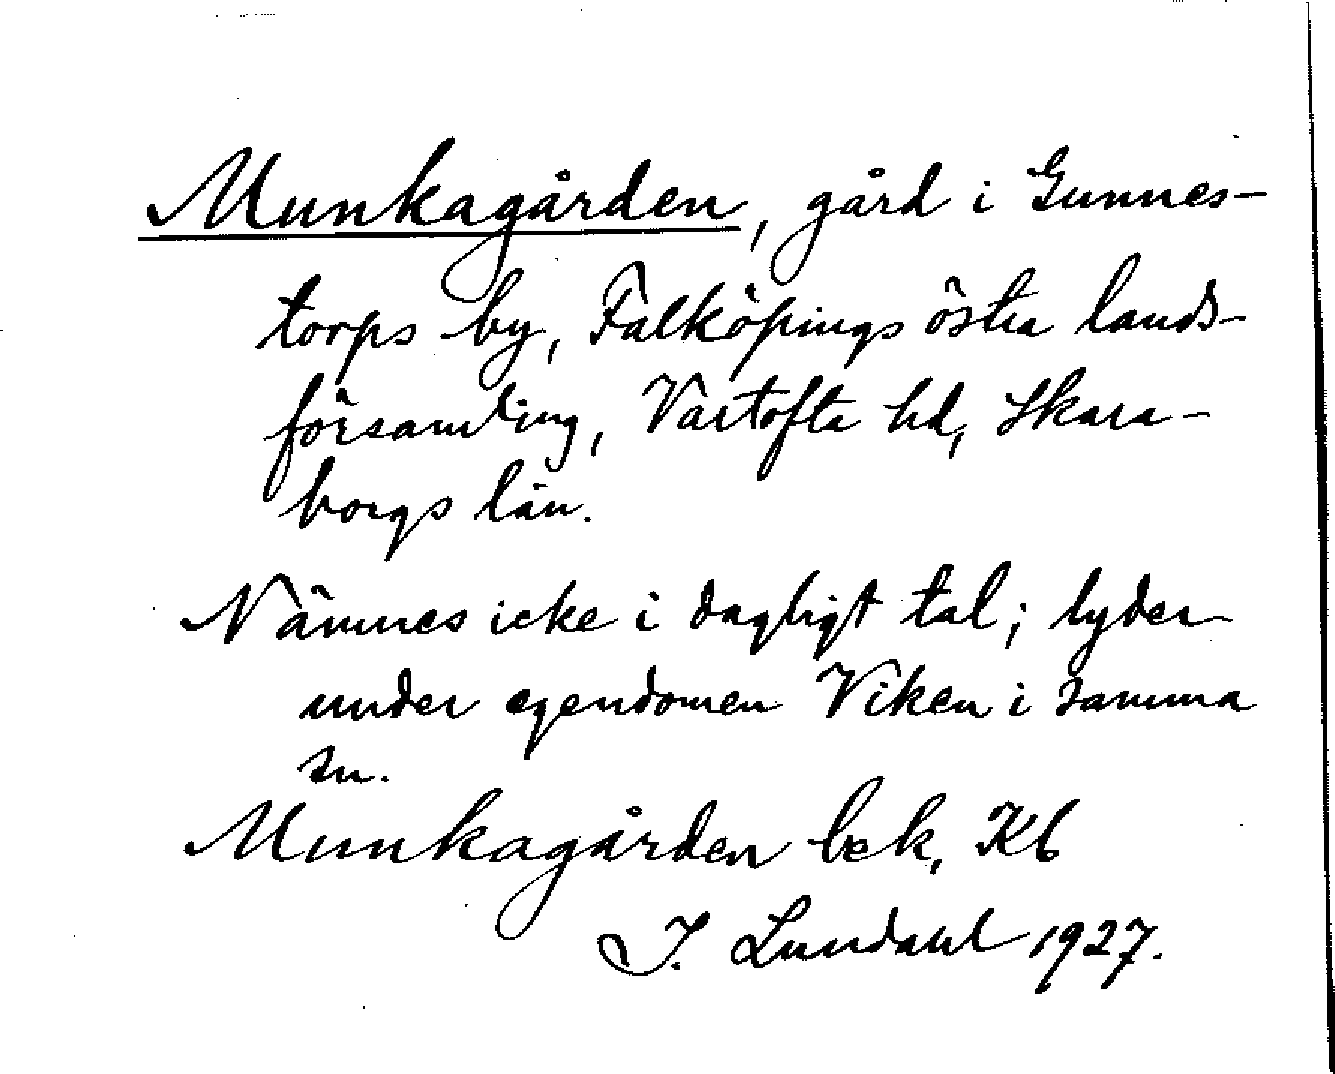 Munkagården, gård i Gunnes-
torps by, Falköpings östra lands-
församling, Vartofta hd, Skara-
borgs län.
Nämnes icke i dagligt tal; lyder
under egendomen Viken i samma
sn.
Munkagården bek, Kb
I. Lundahl 1927.